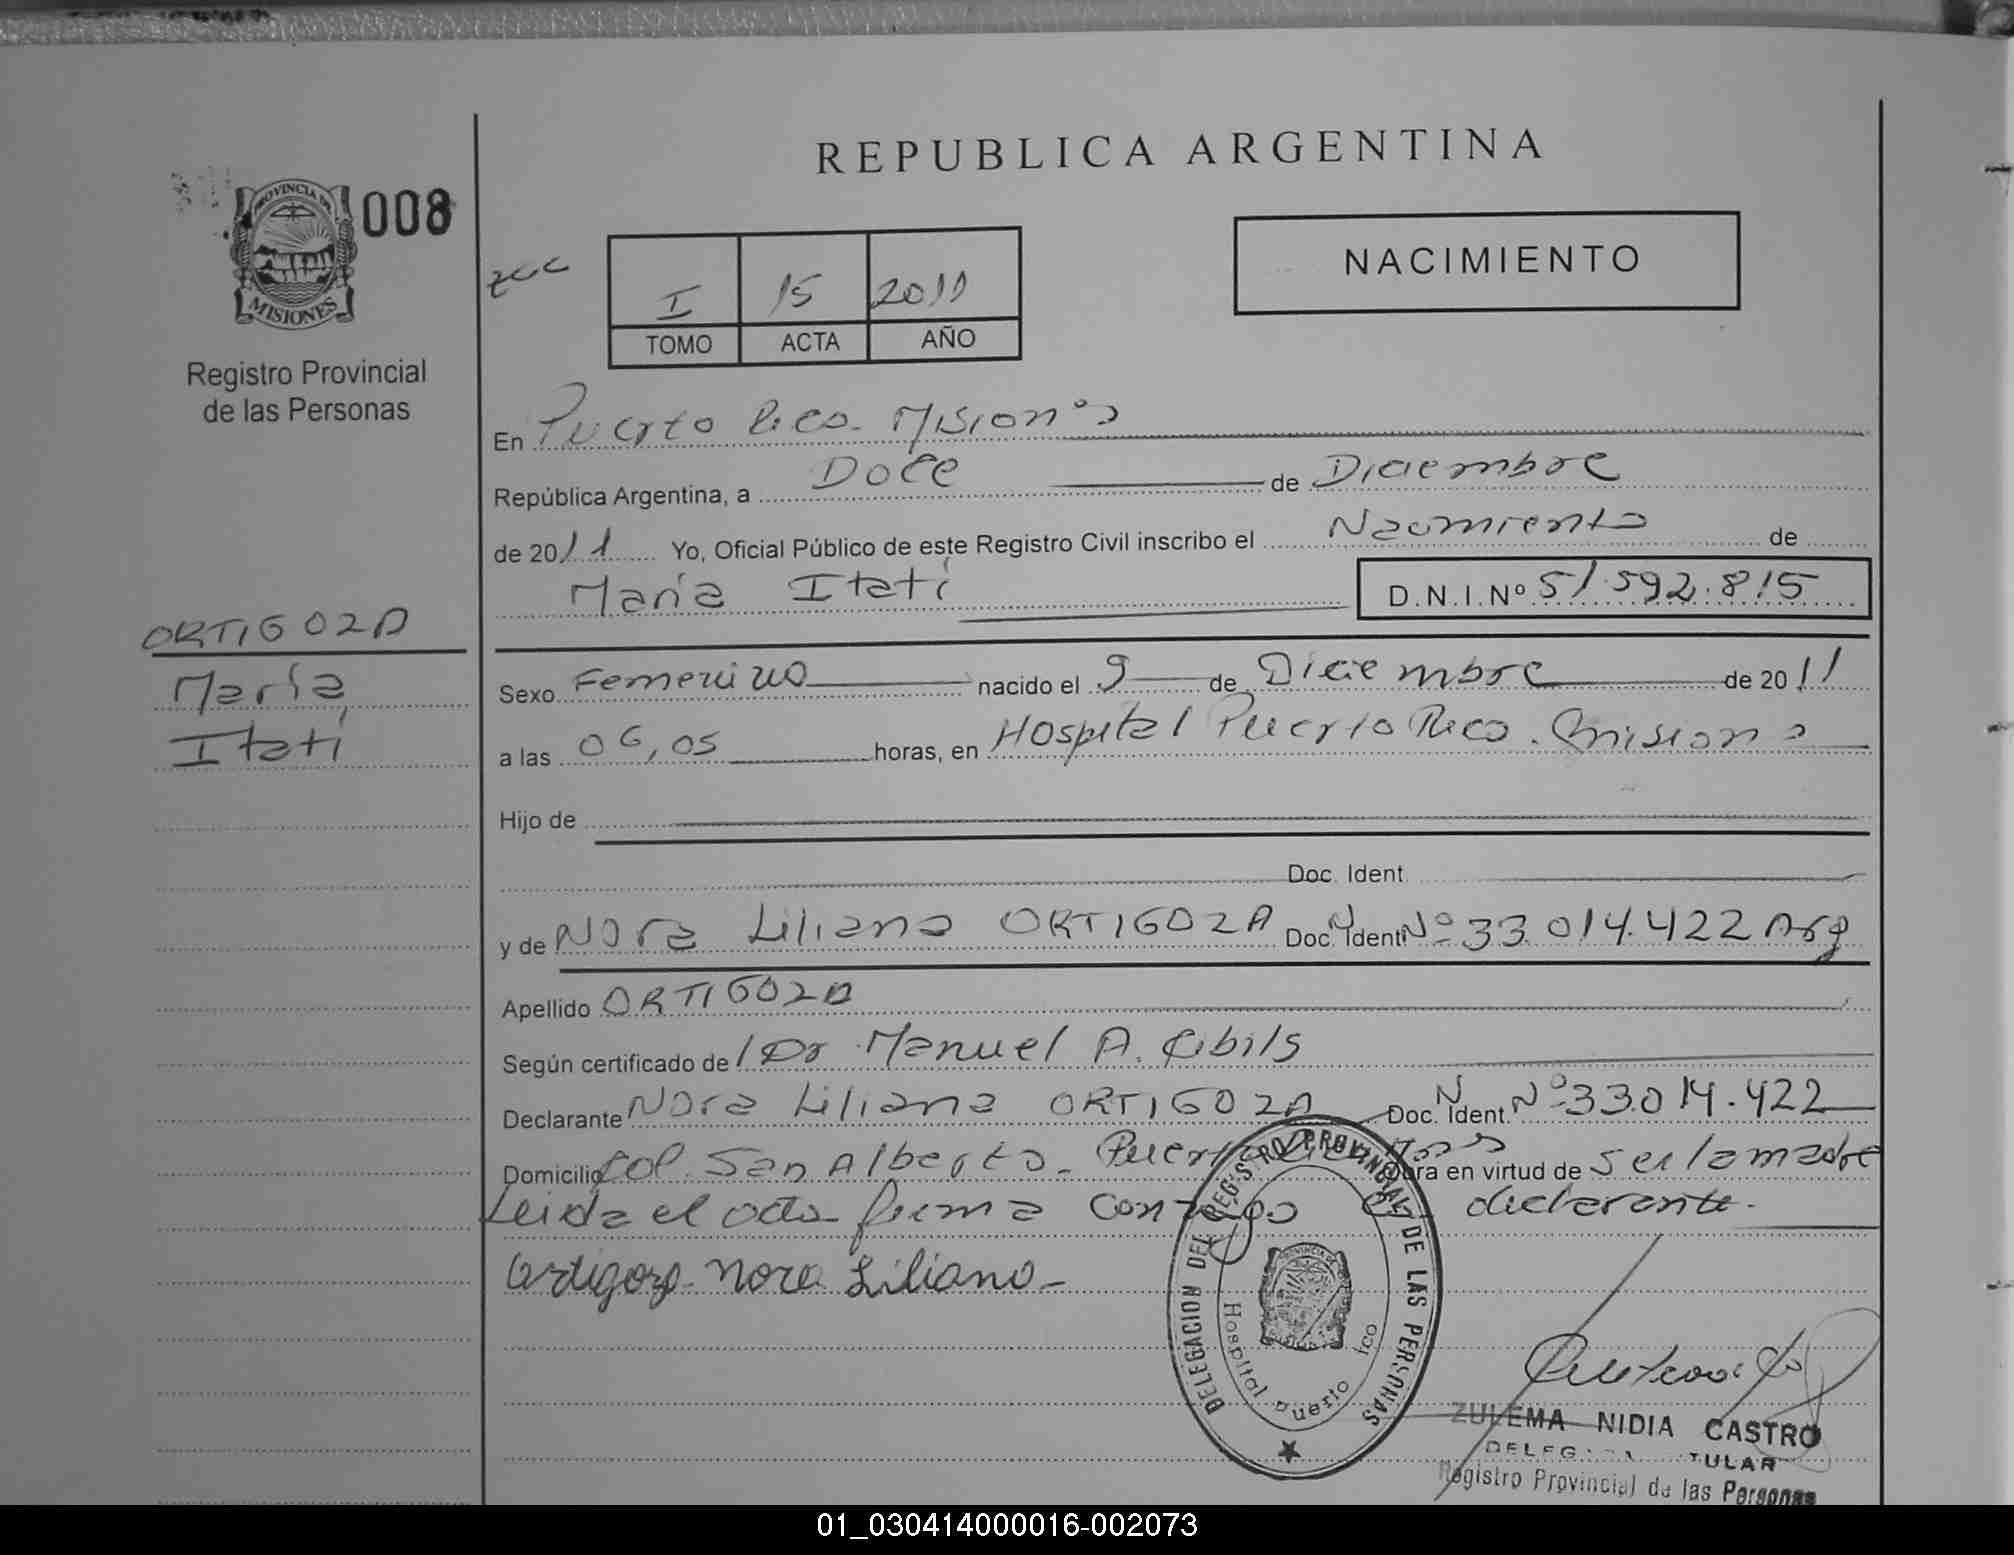 REPUBLICA ARGENTINA
PROVINCIA DE
MISIONES
008
Registro Provincial
de las Personas
NACIMIENTO
I 15 2011
TOMO ACTA AÑO
En Puerto Rico - Misiones
República Argentina, a Doce de Diciembre
de 2011 Yo, Oficial Público de este Registro Civil inscribo el Nacimiento de
María Itatí D.N.I.Nº 51.592.815
ORTIGOZA
María
Itatí
Sexo Femenino nacido el 9 de Diciembre de 2011
a las 06,05 horas, en Hospital Puerto Rico. Misiones
Hijo de
Doc. Ident.
y de Nora Liliana ORTIGOZA Doc. Ident. Nº 33.014.422 Arg
Apellido ORTIGOZA
Según certificado de Dr Manuel A. Cibils
Declarante Nora Liliana ORTIGOZA Doc. Ident. Nº 33.014.422
Domicilio Col. San Alberto - Obra en virtud de ser la madre
Leida el acta firma conmigo declarante.
Ortigoza Nora Liliana
DELEGACION DEL REGISTRO PROVINCIAL DE LAS PERSONAS
Hospital Puerto ico
ZULEMA NIDIA CASTRO
Registro Provincial de las Personas
01_030414000016-002073